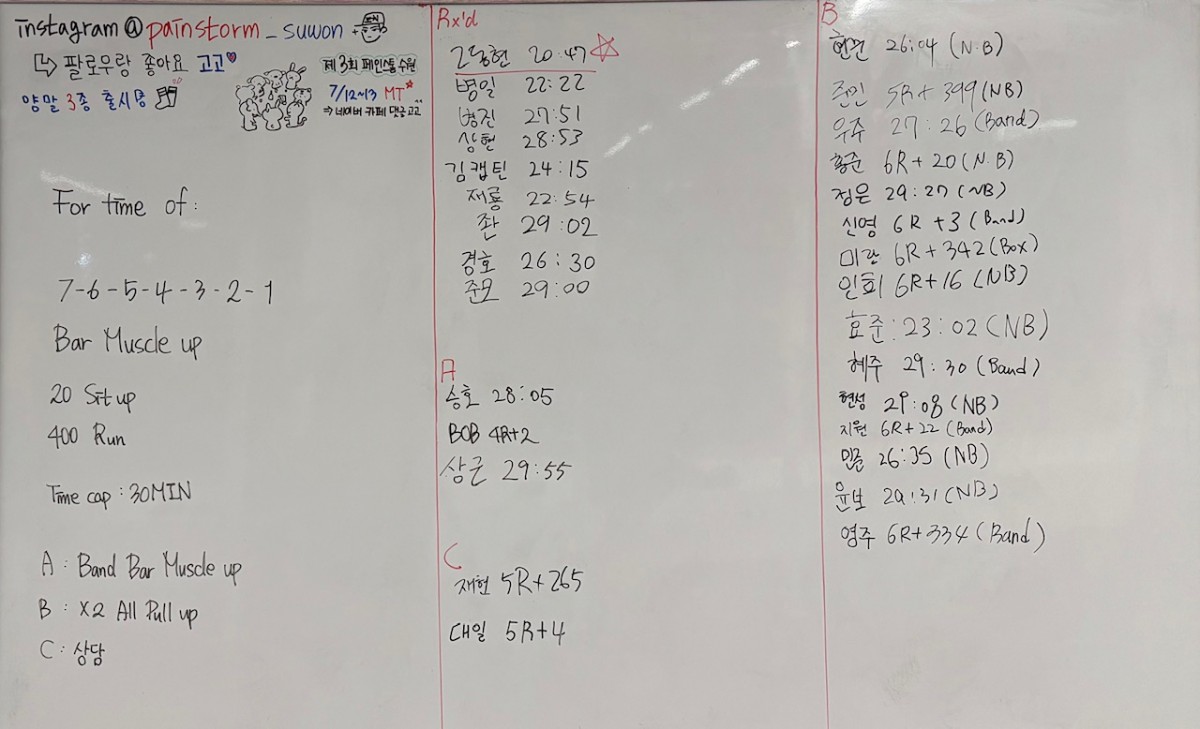 instagram @ painstorm _ suwon
팔로우랑 좋아요 고고
양말 3종 출시
제 3회 페인스톰 수원
7/12~13 MT
⇒ 네이버 카페 댓글 고고
For time of :
7-6-5-4-3-2-1
Bar Muscle up
20 Sit up
400 Run
Time cap : 30MIN
A : Band Bar Muscle up
B : X2 All Pull up
C : 상담
Rx'd
20:47
병일 22:22
병진 27:51
상현 28:53
김캡틴 24:15
재룡 22:54
좐 29:02
경호 26:30
준모 29:00
A
승호 28:05
BOB 4R+2
상근 29:55
C
재현 5R+265
대일 5R+4
B
26:04 (N.B)
5R+399 (NB)
우주 27:26 (Band)
홍준 6R+20 (N.B)
정은 29:27 (NB)
신영 6R+3 (Band)
미란 6R+342 (Box)
인회 6R+16 (NB)
효준 : 23:02 (NB)
혜주 29:30 (Band)
현성 29:08 (NB)
지원 6R+22 (Band)
민준 26:35 (NB)
윤보 29:31 (NB)
영주 6R+334 (Band)